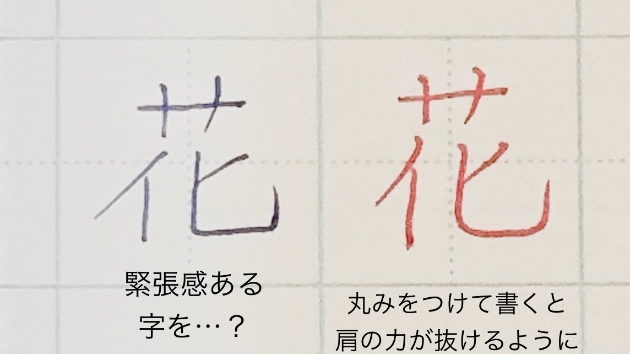 花 花
緊張感ある
字を…？
丸みをつけて書くと
肩の力が抜けるように